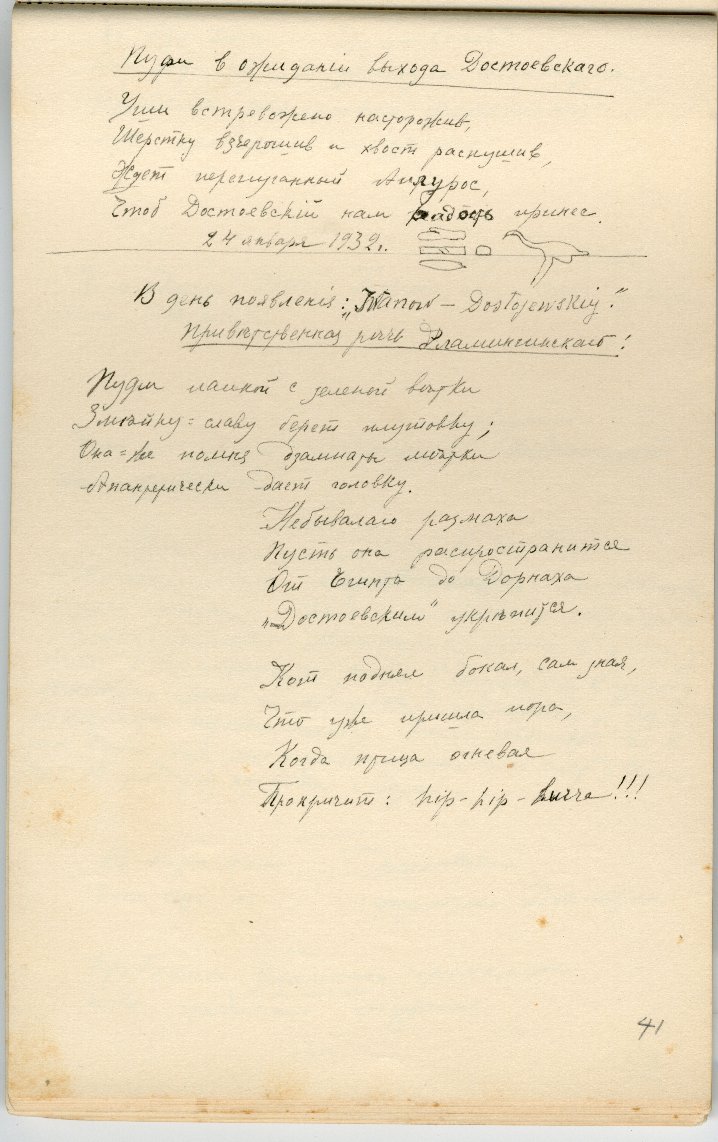 Пуфи в ожиданіи выхода Достоевскаго.
Уши встревожено насторожив,
Шерстку взъерошив и хвост распушив,
Ждет перепуганный Аилурос,
Чтоб Достоевскій нам радость принес.
24 января 1932 г.
В день появленія: „Iwanow – Dostojewskij".
Привѣтственная рѣчь Фламингинскаго!
Пуфи лапкой с зеленой вѣтки
Змѣйку = славу берет плутовку;
Она = же помня
дает головку.
Небывалаго размаха
Пусть она распространится
От Египта до Дорнаха
„Достоевским" укрѣпится.
Кот поднял бокал, сам зная,
Что уже пришла пора,
Когда птица огневая
Прокричит: hip-hip-